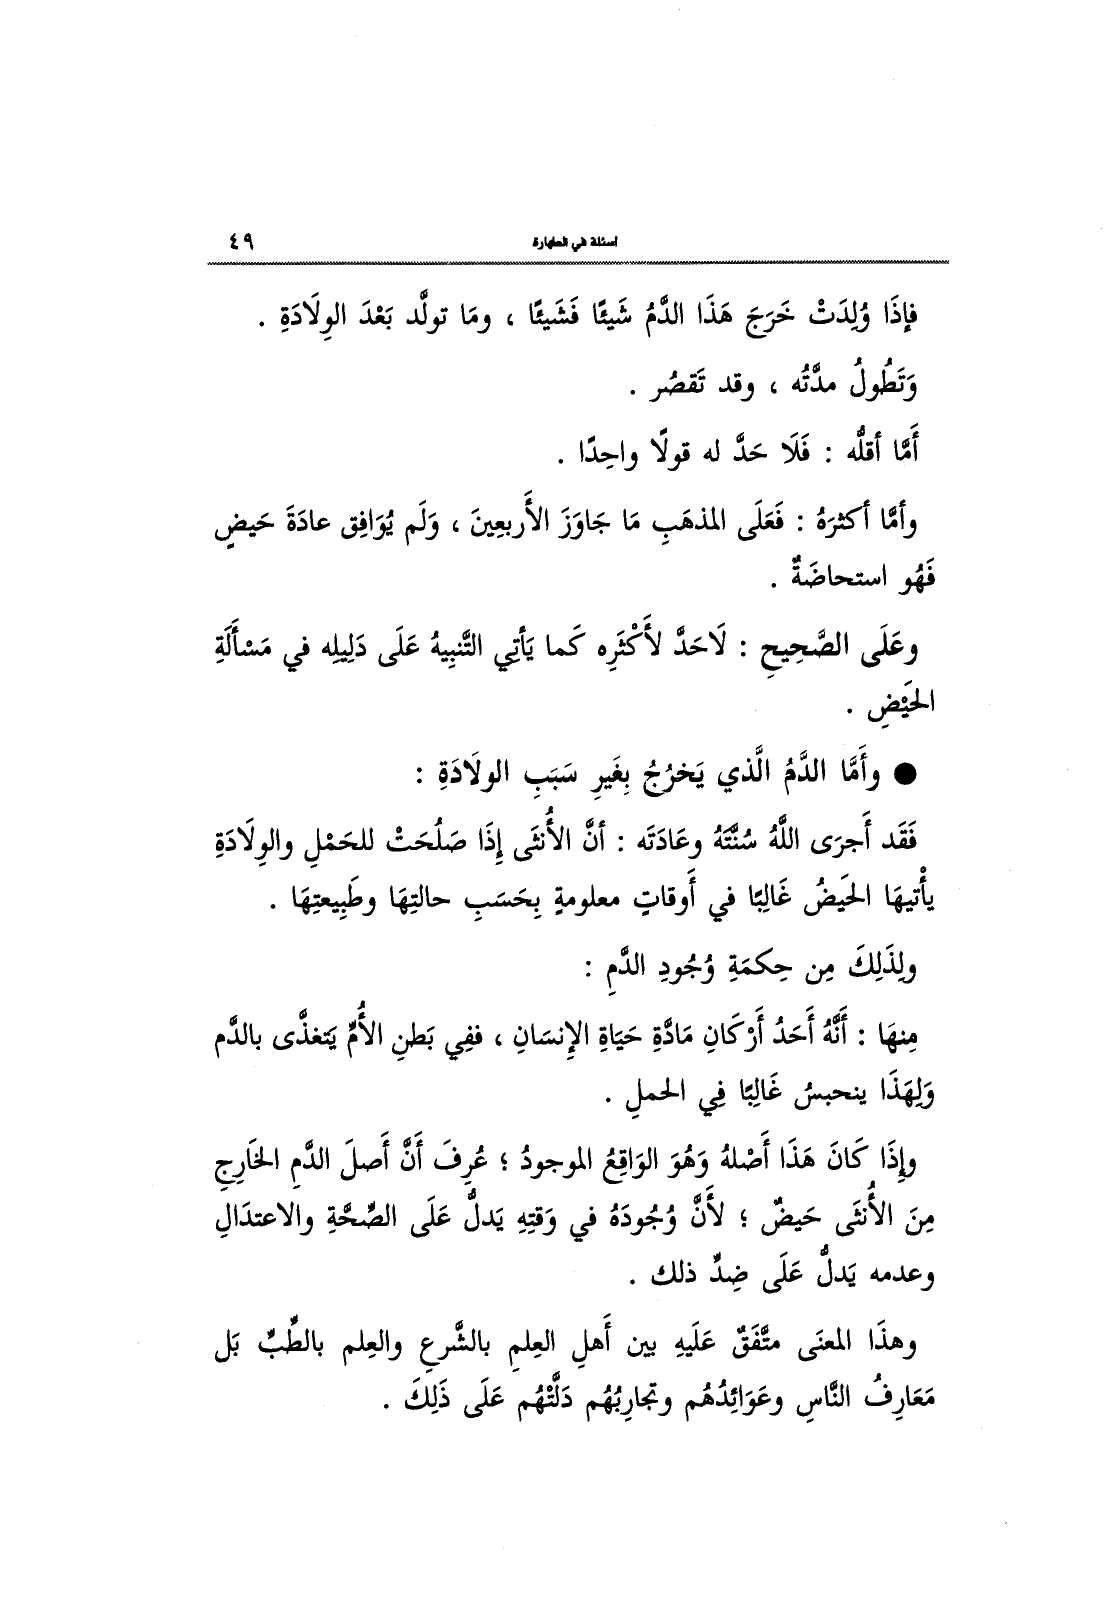 أسئلة في الطهارة ٤٩
فإذَا وُلِدَتْ خَرَجَ هَذَا الدَّمُ شَيئًا فَشَيئًا ، ومَا تولَّد بَعْدَ الوِلَادَةِ .
وَتَطُولُ مدَّتُه ، وقد تَقصُر .
أَمَّا أقلُّه : فَلَا حَدَّ له قولًا واحِدًا .
وأمَّا أكثرَهُ : فَعَلَى المذهَبِ مَا جَاوَزَ الأَربعِينَ ، وَلَم يُوَافِق عادَةَ حَيضٍ
فَهُو استحاضَةٌ .
وعَلَى الصَّحِيحِ : لَاحَدَّ لأَكْثَرِه كَما يَأتِي التَّنبِيهُ عَلَى دَلِيلِه في مَسْأَلَةِ
الحَيْضِ .
● وأَمَّا الدَّمُ الَّذي يَخرُجُ بِغَيرِ سَبَبِ الولَادَةِ :
فَقَد أَجرَى اللَّهُ سُنَّتَهُ وعَادَتَه : أنَّ الأُنثَى إِذَا صَلُحَتْ للحَمْلِ والوِلَادَةِ
يأْتيهَا الحَيضُ غَالِبًا في أَوقاتٍ معلومةٍ بِحَسَبِ حالتِهَا وطَبِيعتِهَا .
ولِذَلِكَ مِن حِكمَةِ وُجُودِ الدَّمِ :
مِنهَا : أَنَّهُ أَحَدُ أَرْكَانِ مَادَّةِ حَيَاةِ الإِنسَانِ ، ففِي بَطنِ الأُمِّ يَتغذَّى بالدَّم
وَلِهَذَا ينحبسُ غَالِبًا فِي الحملِ .
وإِذَا كَانَ هَذَا أَصْلهُ وَهُوَ الوَاقِعُ الموجودُ ؛ عُرِفَ أَنَّ أَصلَ الدَّمِ الخَارِجِ
مِنَ الأُنثَى حَيضٌ ؛ لأَنَّ وُجُودَهُ في وَقتِهِ يَدلُّ عَلَى الصِّحَّةِ والاعتدَالِ
وعدمه يَدلُّ عَلَى ضِدِّ ذلك .
وهذَا المعنَى متَّفَقٌ عَلَيهِ بين أَهلِ العِلمِ بالشَّرعِ والعِلم بالطِّبِّ بَل
مَعَارِفُ النَّاسِ وعَوَائِدُهُم وتجارِبُهُم دَلَّتْهُم عَلَى ذَلِكَ .